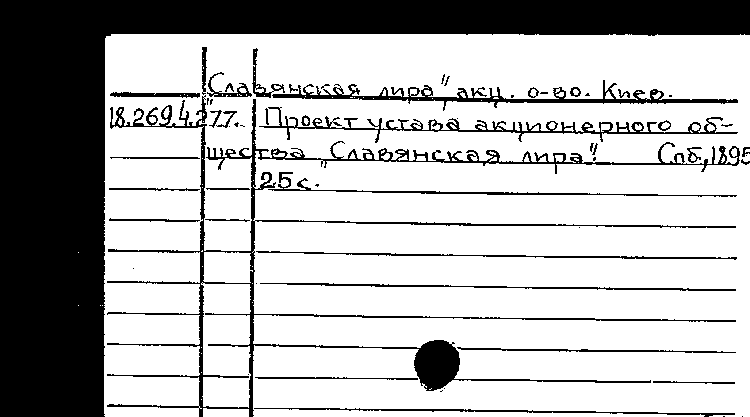 „Славянская лира", акц. о-во. Киев.
18.269.4.277. Проект устава акционерного об-
щества „Славянская лира". Спб., 1895
25 с.